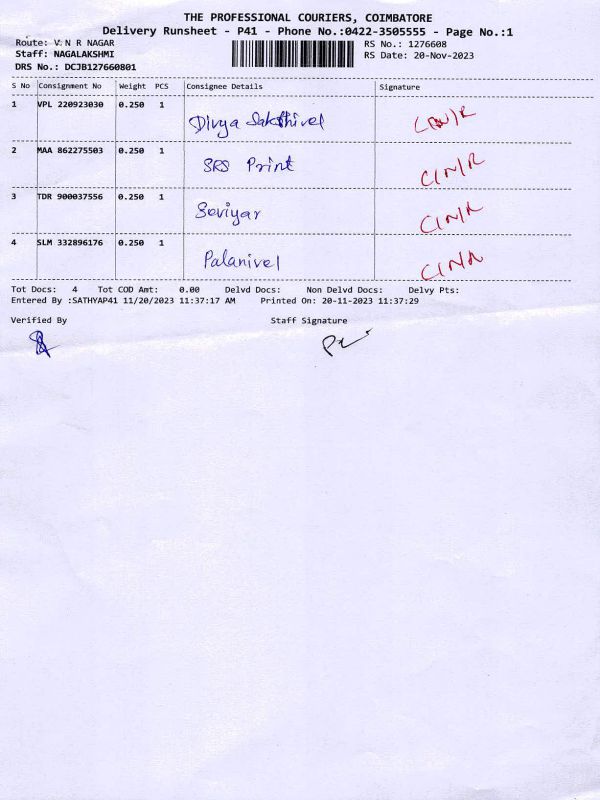 THE PROFESSIONAL COURIERS, COIMBATORE
Delivery Runsheet - P41 - Phone No.:0422-3505555 - Page No.:1
Route: V N R NAGAR
Staff: NAGALAKSHMI
DRS No.: DCJB127660801
RS No.: 1276608
RS Date: 20-Nov-2023
S No Consignment No Weight PCS Consignee Details Signature
1 VPL 220923030 0.250 1 Divya Sakthivel
2 MAA 862275503 0.250 1 SRS Print C/N/R
3 TDR 900037556 0.250 1 Seviyar C/N/R
4 SLM 332896176 0.250 1 Palanivel
Tot Docs: 4 Tot COD Amt: 0.00 Delvd Docs: Non Delvd Docs: Delvy Pts:
Entered By :SATHYAP41 11/20/2023 11:37:17 AM Printed On: 20-11-2023 11:37:29
Verified By Staff Signature